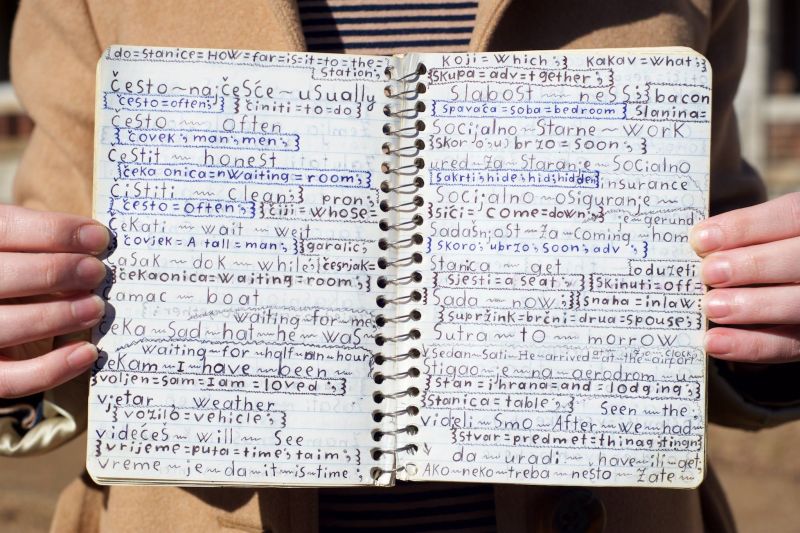 do=stanice=HOW=far=is=it=to=the=
station;
često~najčešće~usually
često=often; činiti=to=do;
često ~ often
čovek; man; men;
čestit ~ honest
čeka onica=nWaiting=room;
čistiti ~ clean; pron;
često=often; čiji=whose=
čekati ~ wait ~ weit
čovjek=A tall=man; garalic;
časak ~ dok ~ while; češnjak=
čekaonica=waiting=room;
čamac ~ boat
waiting~for~me
čeka~Sad~hat~he~was
waiting~for~half~an~hour
čekam~I~have~been~
voljen=sam=I am=loved;
vjetar ~ weather
vozilo=vehicle;
videćeš~will~See
vrijeme=puta=time; taim;
vreme~je~da~it~is~time;
koji=which; kakav=what;
skupa=adv=tgether;
slabost ~ ness; bacon
spavaća=soba=bedroom slanina=
Socijalno~Starne~work
skoro;u) brzo=soon;
ured~za~Staranje~socialno
sakrti;hide;hid;hidden insurance
Socijalno~osiguranje~
sići=come=down; gerund
Sadašnjost~za~coming~hom
skoro; ubrzo; soon; adv
Stanica ~ get oduzeti
sjesti=a seat; skinuti=off=
Sada ~ now; snaha=inlaw
supružnik=brčni=drug=spouse;
Sutra ~ to ~ morrow
sedam~sati~He~arrived~at~the~airport
Stigao~je~na~aerodrom~u
stan=i;hrana=and=lodging;
stanica=table; Seen~the
videli~smo~After~we~had
stvar=predmet=thinag;tingn
da~uradi~have~ili~get
Ako~neko~treba~nešto~Zate~